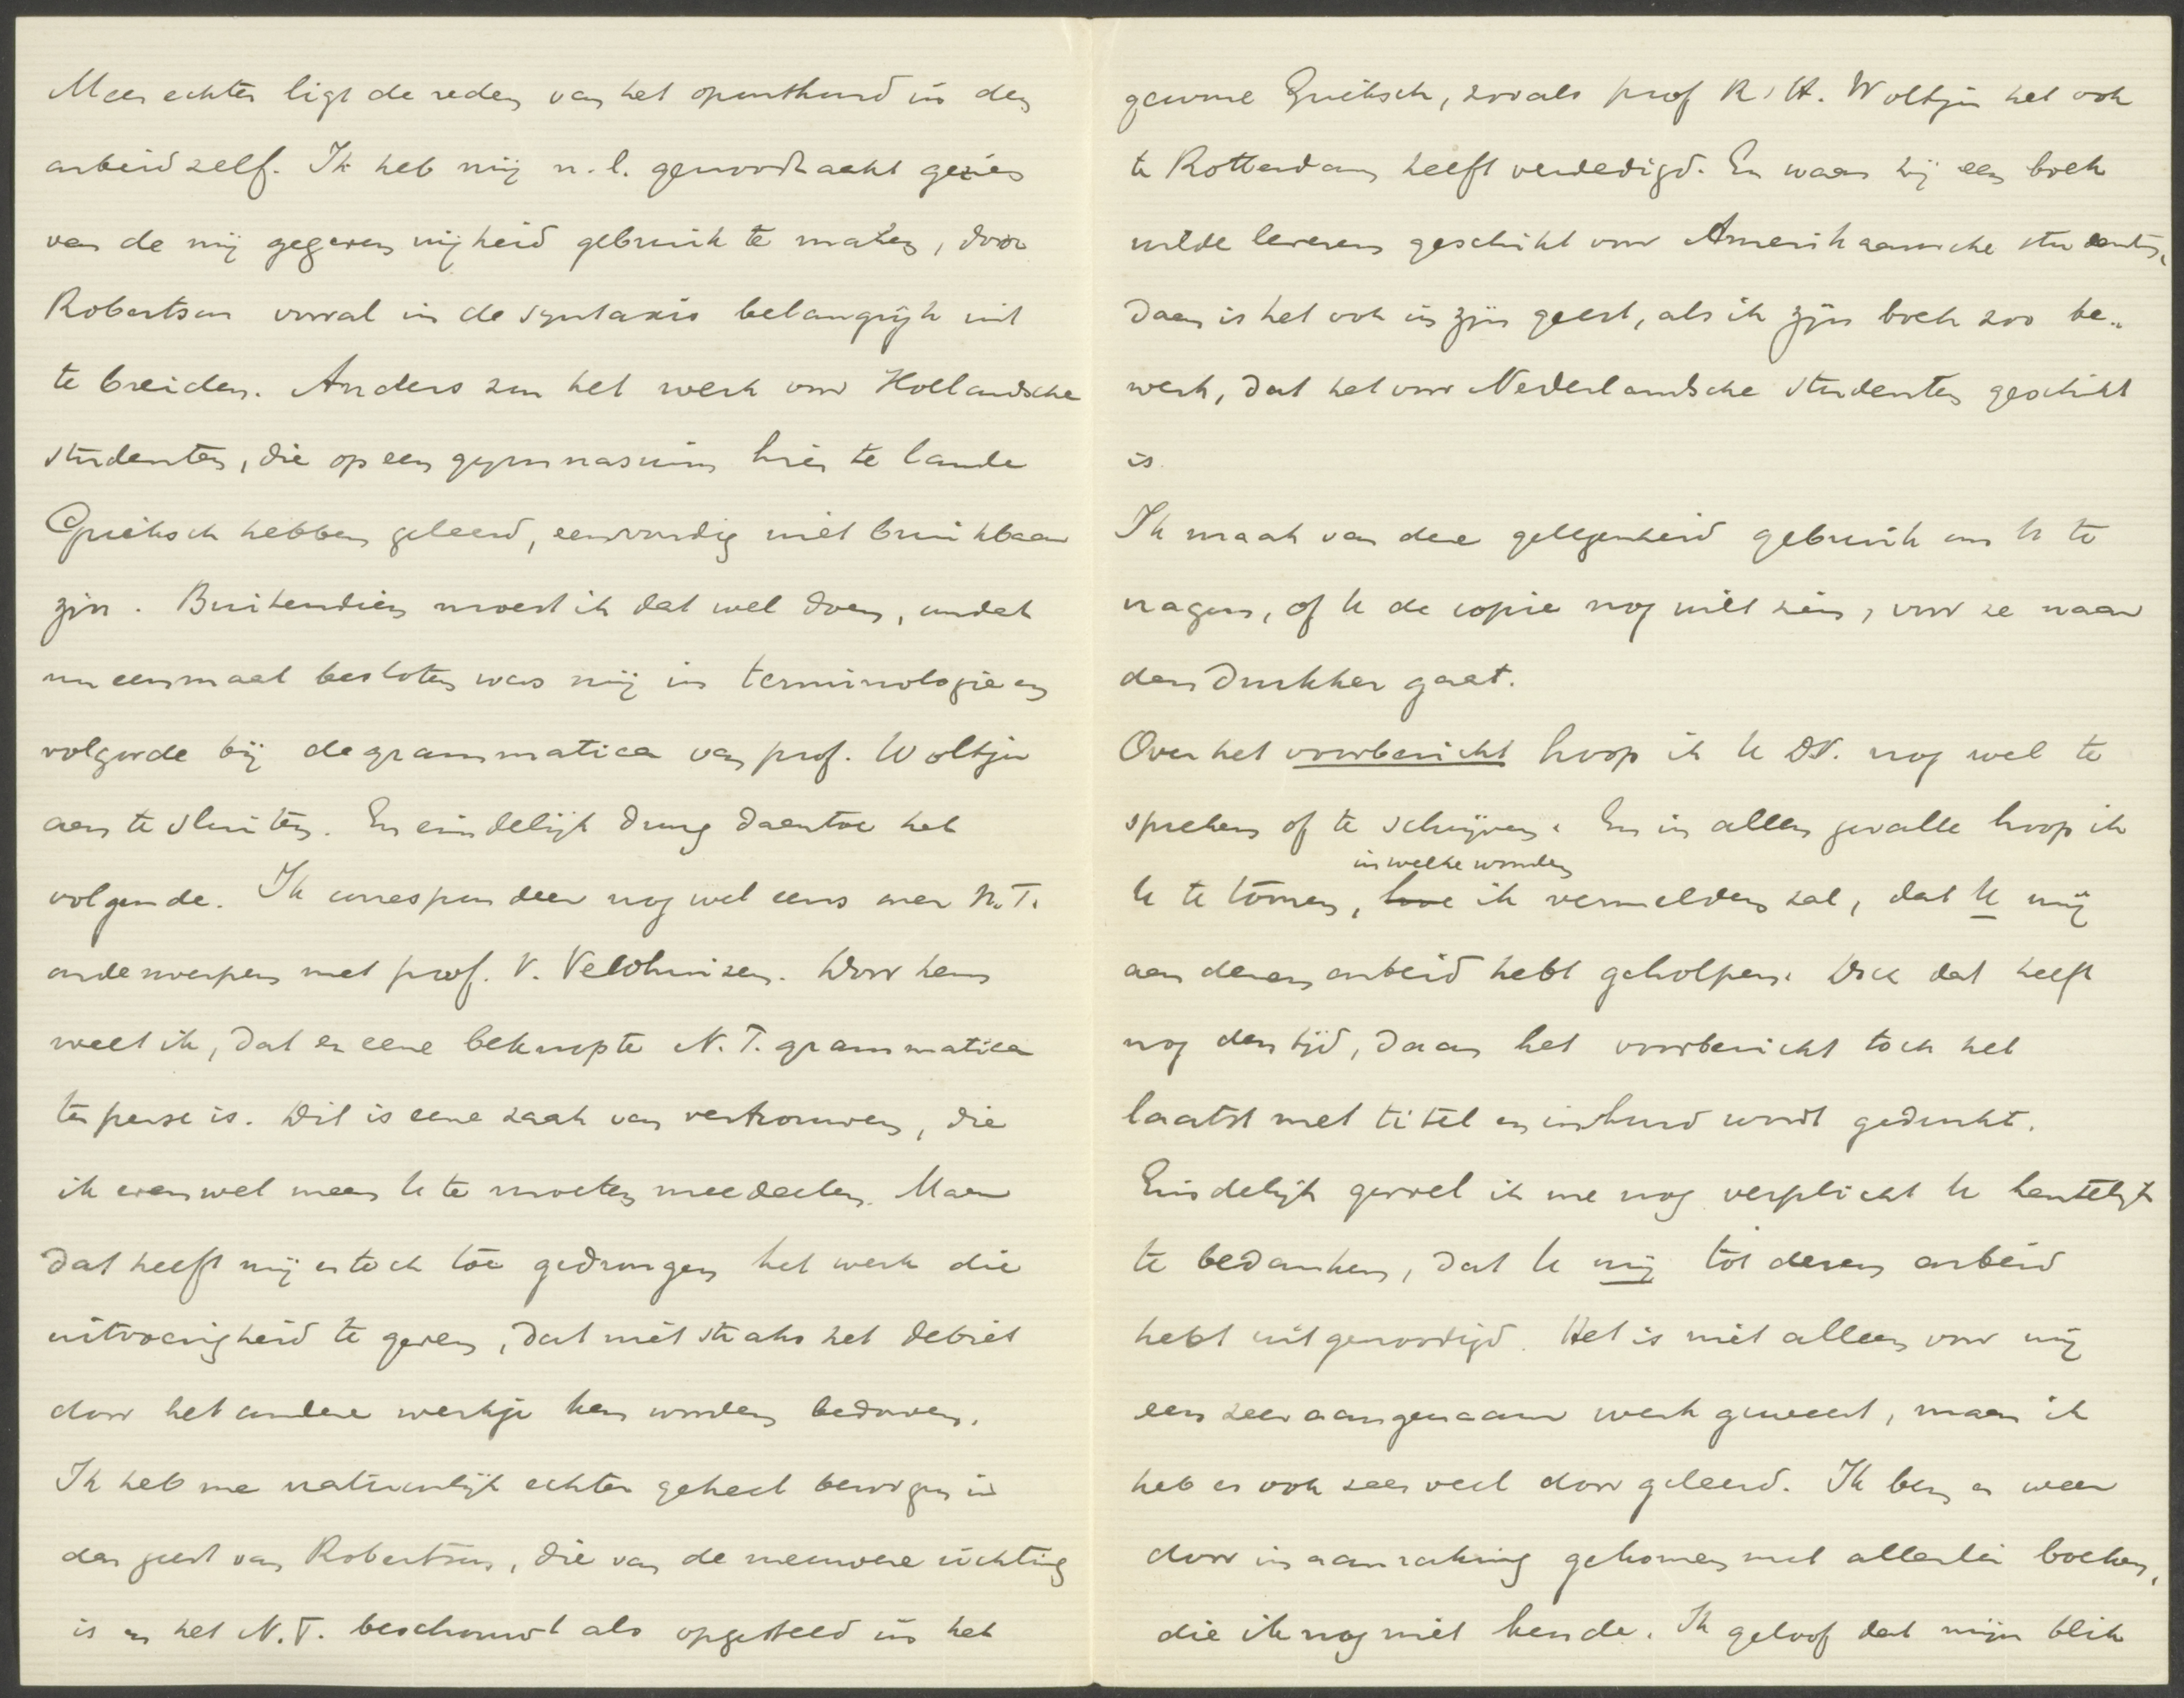 Meer echter ligt de reden van het oponthoud in den
arbeid zelf. Ik heb mij n.l. genoodzaakt gezien
van de mij gegeven vrijheid gebruik te maken, door
Robertson vooral in de syntaxis belangrijk uit
te breiden. Anders zou het werk voor Hollandsche
studenten, die op een gymnasium hier te lande
Grieksch hebben geleerd, eenvoudig niet bruikbaar
zijn. Buitendien moest ik dat wel doen, omdat
nu eenmaal besloten was mij in terminologie en
volgorde bij de grammatica van prof. Woltjer
aan te sluiten. En eindelijk drong daartoe het
volgende. Ik correspondeer nog wel eens over N.T.
onderwerpen met prof. v. Veldhuizen. Door hem
weet ik, dat er eene beknopte N.T. grammatica
ter perse is. Dit is eene zaak van vertrouwen, die
ik evenwel meen U te moeten meedeelen. Maar
dat heeft mij er toch toe gedrongen het werk die
uitvoerigheid te geven, dat niet straks het debiet
door het andere werkje kan worden bedorven.
Ik heb me natuurlijk echter geheel bewogen in
den geest van Robertson, die van de nieuwere richting
is en het N.T. beschouwt als opgesteld in het
gewone Grieksch, zooals prof R.H. Woltjer het ook
te Rotterdam heeft verdedigd. En waar hij een boek
wilde leveren geschikt voor Amerikaansche studenten,
daar is het ook in zijn geest, als ik zijn boek zoo be-
werk, dat het voor Nederlandsche studenten geschikt
is.
Ik maak van deze gelegenheid gebruik om U te
vragen, of U de copie nog wilt zien, voor ze naar
den drukker gaat.
Over het voorbericht hoop ik U DV. nog wel te
spreken of te schrijven. En in allen gevalle hoop ik
in welke woorden
U te toonen, hoe ik vermelden zal, dat U mij
aan dezen arbeid hebt geholpen. Doch dat heeft
nog den tijd, daar het voorbericht toch het
laatst met titel en inhoud wordt gedrukt.
Eindelijk gevoel ik me nog verplicht U hartelijk
te bedanken, dat U mij tot dezen arbeid
hebt uitgenoodigd. Het is niet alleen voor mij
een zeer aangenaam werk geweest, maar ik
heb er ook zeer veel door geleerd. Ik ben er weer
door in aanraking gekomen met allerlei boeken,
die ik nog niet kende. Ik geloof dat mijn blik